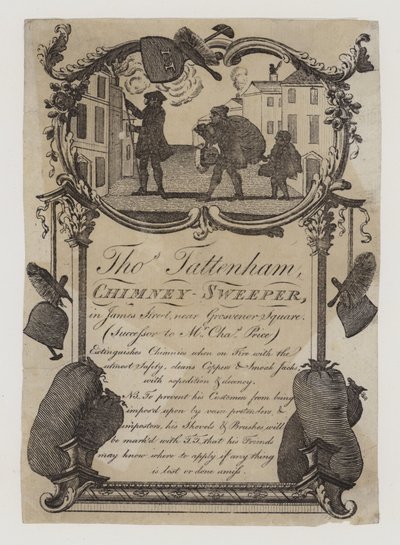 T T
Tho.s Tattenham,
CHIMNEY-SWEEPER,
in James Street, near Grosvenor Square.
(Successor to Mr. Chas. Price)
Extinguishes Chimnies when on Fire with the
utmost Safety, cleans Coppers & Smoak Jacks,
with expedition & decency.
NB. To prevent his Customers from being
impos'd upon by vain pretenders, &
impostors, his Shovels & Brushes, will
be mark'd with T.T. that his Friends
may know where to apply if any thing
is lost or done amiss.